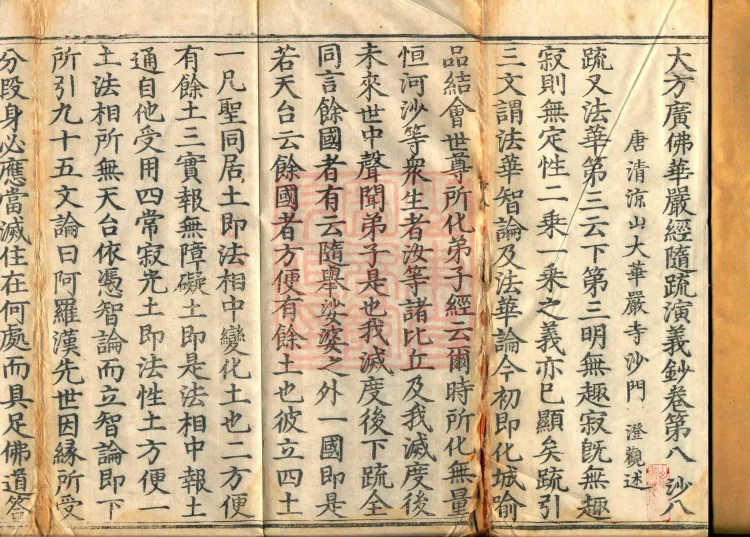 大方廣佛華嚴經隨疏演義鈔卷第八 沙八
唐清涼山大華嚴寺沙門 澄觀述
疏又法華第三云下第三明無趣寂旣無趣
寂則無定性二乗一乗之義亦已顯矣疏引
三文謂法華智論及法華論今初即化城喻
品結會世尊所化弟子經云爾時所化無量
恒河沙等衆生者汝等諸比丘及我滅度後
未來世中聲聞弟子是也我滅度後下疏全
同言餘國者有云隨舉娑婆之外一國即是
若天台云餘國者方便有餘土也彼立四土
一凡聖同居土即法相中變化土也二方便
有餘土三實報無障礙土即是法相中報土
通自他受用四常寂光土即法性土方便一
土法相所無天台依憑智論而立智論即下
所引九十五文論曰阿羅漢先世因緣所受
分段身必應當滅住在何處而具足佛道答